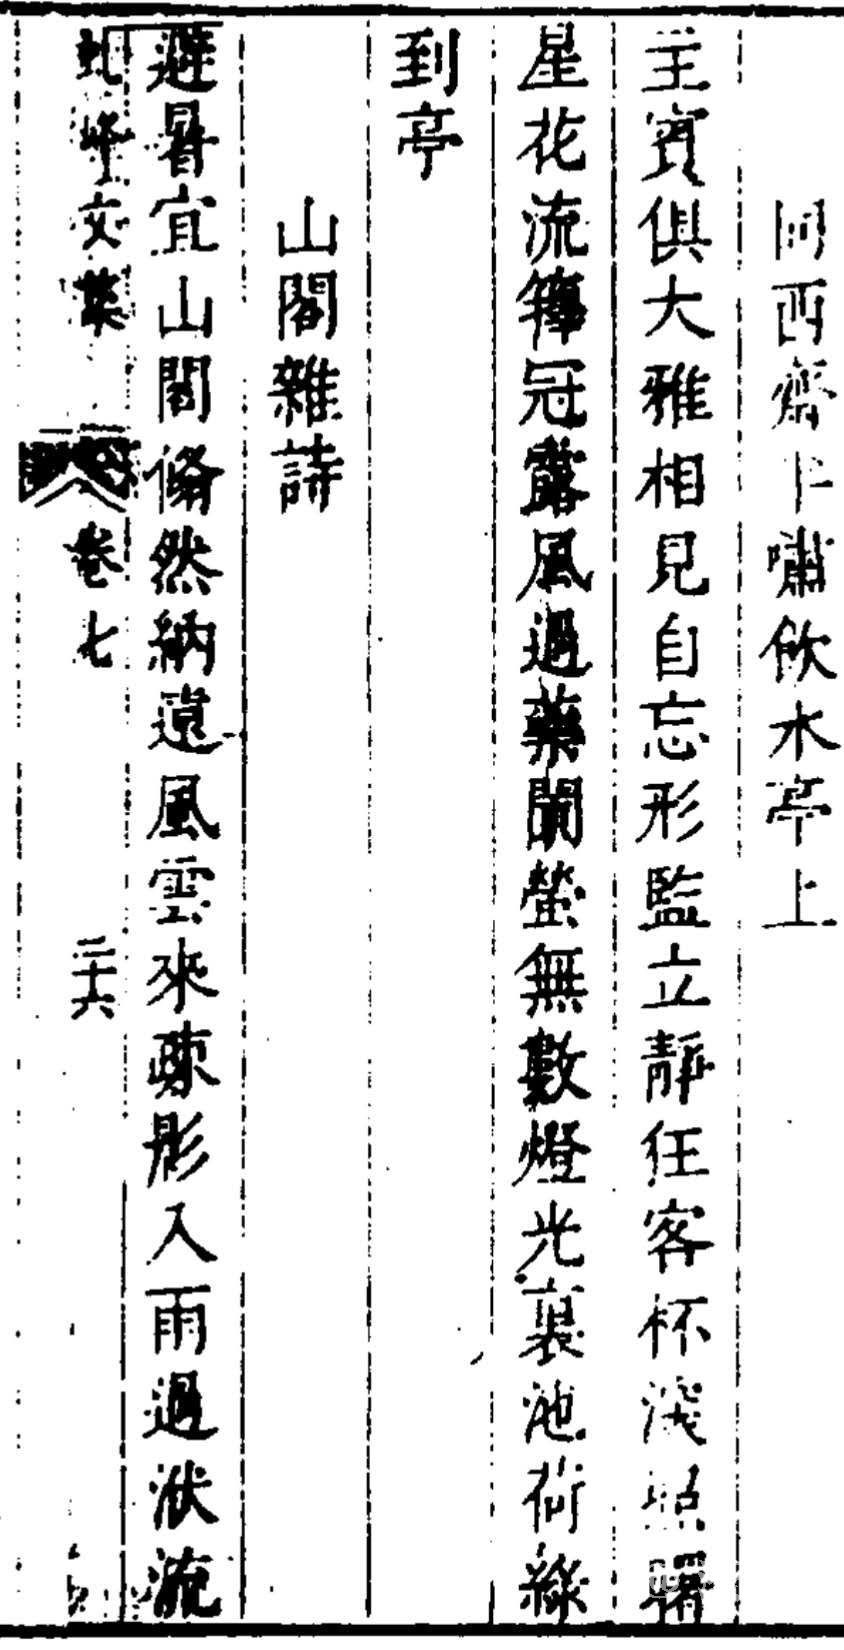 同西齋上嘯飲水亭上
主賓俱大雅相見自忘形監立靜狂客杯淺照曙
星花流籜冠露風過藥闌螢無數燈光裏池荷綠
到亭
山閣雜詩
避暑宜山閣翛然納遠風雲來疎影入雨過洑流
虬峰文集
卷七
三十六